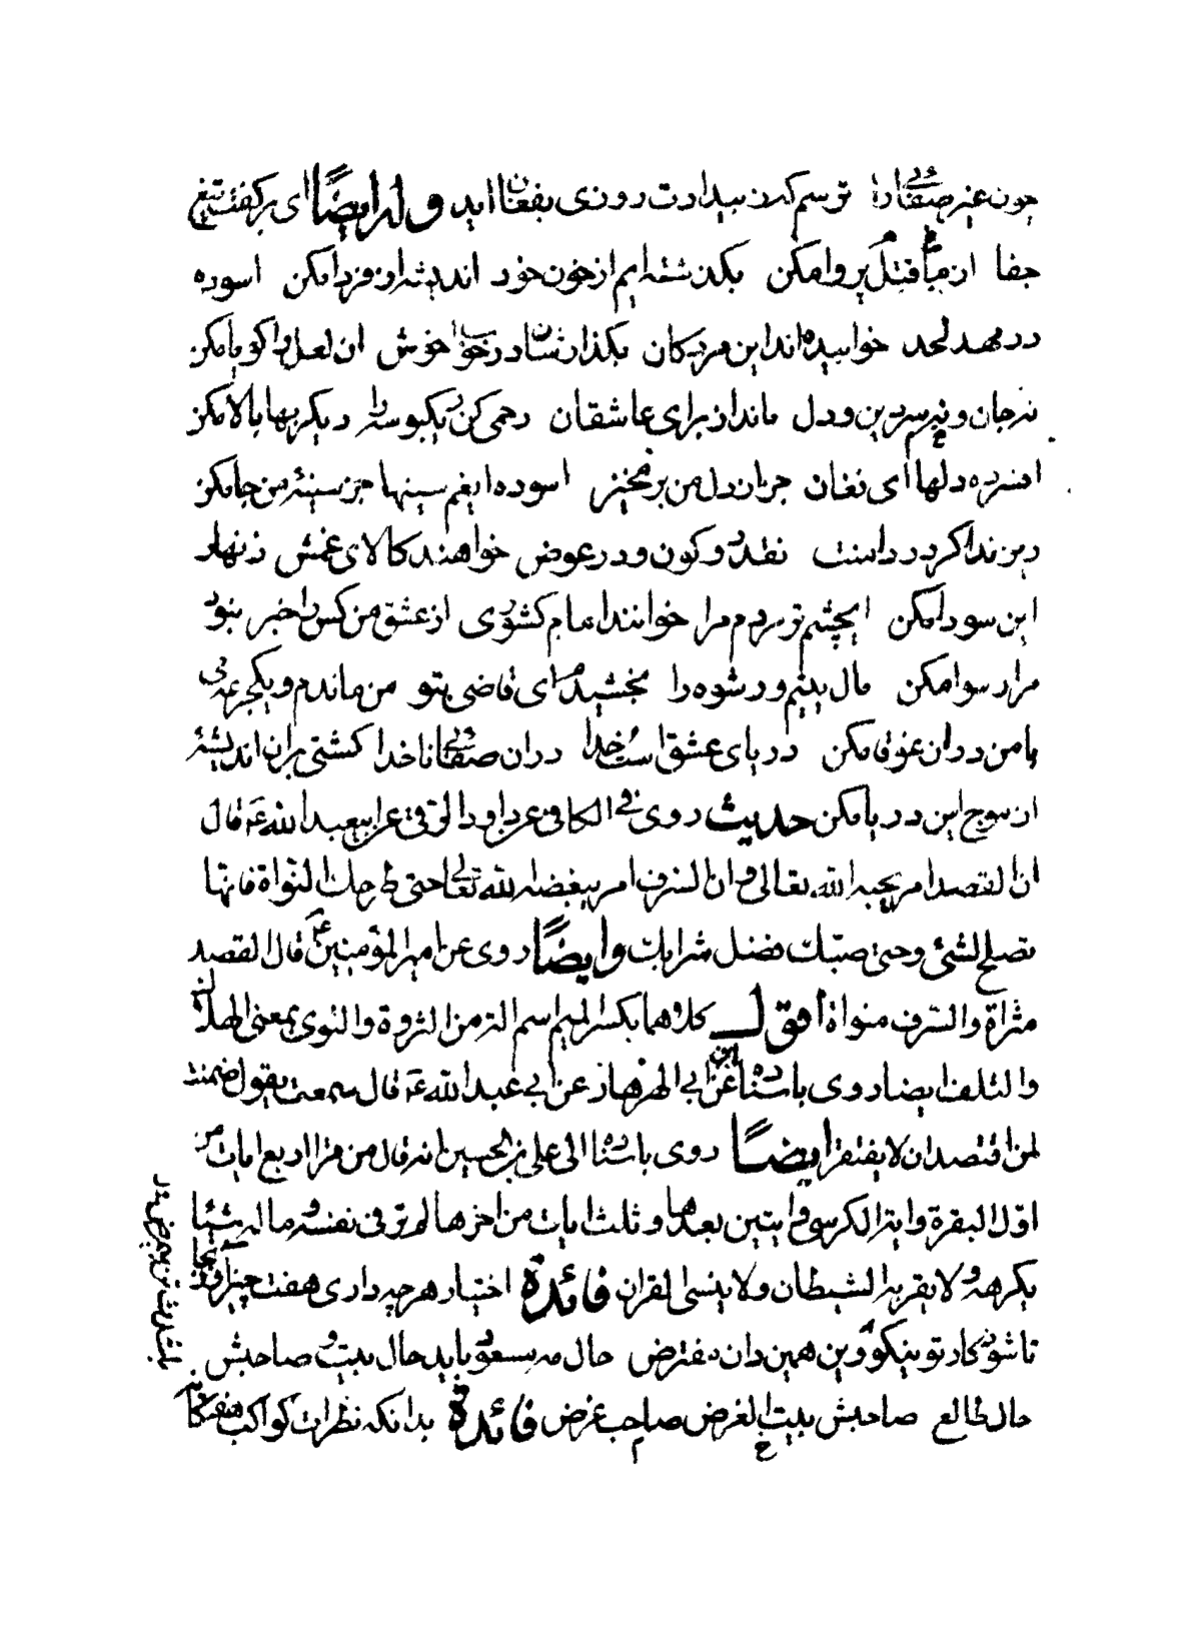 چون عنبر صفائی را ترسم کزین بیدادت روزی بفغان اید وله ایضاً ای برکفت تیغ
جفا از قتل پروا مکن بگذشته ایم از خون خود اندیشه از فردا مکن اسوده
در مهد لحد خوابیده اند این مردگان بگذارشان در خواب خوش ان لعل را گویا مکن
نه جان و نه سر دین و دل ماند از برای عاشقان رحمی کن و یکبوسه را دیگر بها بالا مکن
افسرده دلها ای فغان جز از دل من بر مخیز اسوده ای غم سینها جز سینهٔ من جا مکن
دین ندا کرد در دلست نقد دو کون و در عوض خواهند کالای غمش زنهار
این سودا مکن ایچشم تر مردم مرا خوانند امام کشوری از عشق من کس را خبر نبود
مرا رسوا مکن مال یتیم و رشوه را بخشیدم ای قاضی بتو من ماندم و یکجرعه می
با من در ان غوقا مکن دریای عشق است خدا در ان صفائی ناخدا کشتی بران اندیشهٔ
از موج این دریا مکن حدیث روی فی الکافی عن داود الرقی عن ابیعبد الله ع قال
ان القصد امر یحبه الله تعالی و ان السرف امر یبغضه الله تعالی حتی طرحک النواة فانها
تصلح لشئ و حتی صبک فضل شرابک وایضاً روی عن امیر المؤمنین ع قال القصد
مثراة والسرف منواة اقول کلاهما بکسر المیم اسم الة من الثروة والنوی بمعنی الهلاک
والتلف ایضا روی باسناده عن ابن ابی الهزهاز عن ابی عبد الله ع قال سمعت یقول ضمنت
لمن اقتصد ان لا یفتقر ایضاً روی باسناده الی علی بن الحسین انه قال من قرأ اربع ایات من
اول البقرة وایة الکرسی و ایتین بعدها و ثلث ایات من اخرها لم یر فی نفسه و ماله شیئا
یکرهه ولا یقربه الشیطان ولا ینسی القران فائدة اختیار هرچه داری هفت چیز اور بجا
تا شود کار تو نیکو وین همین دان مفترض حال مه مسعود باید حال بیت و صاحبش
حال طالع صاحبش بیت الغرض صاحب غرض فائدة بدانکه نظرات کواکب